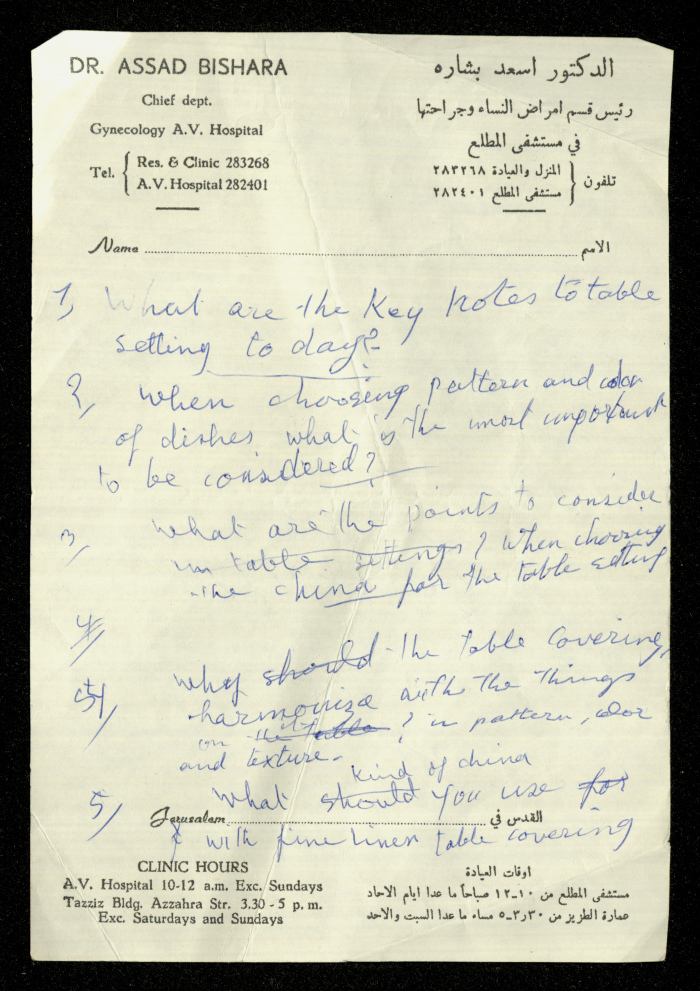 DR. ASSAD BISHARA
Chief dept.
Gynecology A.V. Hospital
Tel. { Res. & Clinic 283268
A.V. Hospital 282401
الدكتور اسعد بشاره
رئيس قسم امراض النساء وجراحتها
في مستشفى المطلع
تلفون { المنزل والعيادة ٢٨٣٢٦٨
مستشفى المطلع ٢٨٢٤٠١
Name ........ الاسم
1, What are the Key notes to table
setting to day?
2, When choosing pattern and color
of dishes what is the most important
to be considered?
3, What are the points to consider
in table settings? When choosing
the china for the table setting
4/
Why should the table covering,
harmonize with the things
on the table ? in pattern, color
and texture.
kind of china
5/ What should you use for
Jerusalem ........ القدس في
with fine linen table covering
CLINIC HOURS
A.V. Hospital 10-12 a.m. Exc. Sundays
Tazziz Bldg. Azzahra Str. 3.30 - 5 p.m.
Exc. Saturdays and Sundays
اوقات العيادة
مستشفى المطلع من ١٠-١٢ صباحاً ما عدا ايام الاحاد
عمارة الطزيز من ٣٠ر٣-٥ مساء ما عدا السبت والاحد